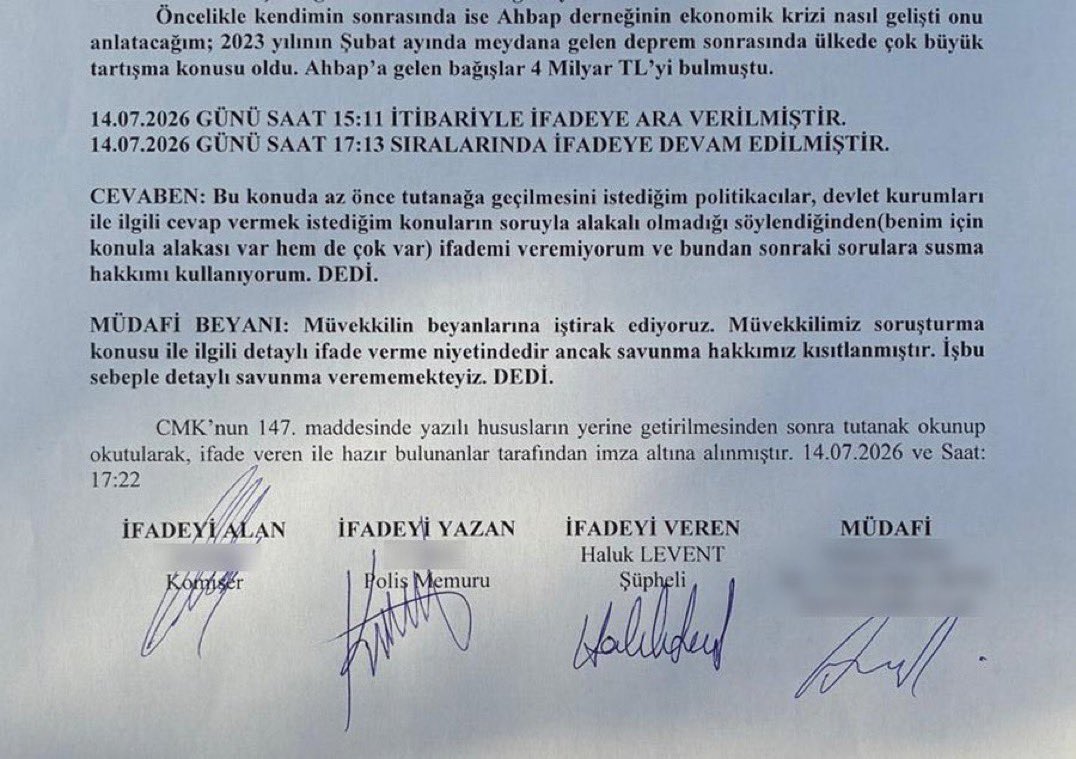 Öncelikle kendimin sonrasında ise Ahbap derneğinin ekonomik krizi nasıl gelişti onu
anlatacağım; 2023 yılının Şubat ayında meydana gelen deprem sonrasında ülkede çok büyük
tartışma konusu oldu. Ahbap’a gelen bağışlar 4 Milyar TL’yi bulmuştu.
14.07.2026 GÜNÜ SAAT 15:11 İTİBARİYLE İFADEYE ARA VERİLMİŞTİR.
14.07.2026 GÜNÜ SAAT 17:13 SIRALARINDA İFADEYE DEVAM EDİLMİŞTİR.
CEVABEN: Bu konuda az önce tutanağa geçilmesini istediğim politikacılar, devlet kurumları
ile ilgili cevap vermek istediğim konuların soruyla alakalı olmadığı söylendiğinden(benim için
konula alakası var hem de çok var) ifademi veremiyorum ve bundan sonraki sorulara susma
hakkımı kullanıyorum. DEDİ.
MÜDAFİ BEYANI: Müvekkilin beyanlarına iştirak ediyoruz. Müvekkilimiz soruşturma
konusu ile ilgili detaylı ifade verme niyetindedir ancak savunma hakkımız kısıtlanmıştır. İşbu
sebeple detaylı savunma verememekteyiz. DEDİ.
CMK’nun 147. maddesinde yazılı hususların yerine getirilmesinden sonra tutanak okunup
okutularak, ifade veren ile hazır bulunanlar tarafından imza altına alınmıştır. 14.07.2026 ve Saat:
17:22
İFADEYİ ALAN İFADEYİ YAZAN İFADEYİ VEREN MÜDAFİ
Haluk LEVENT
Komiser Polis Memuru Şüpheli